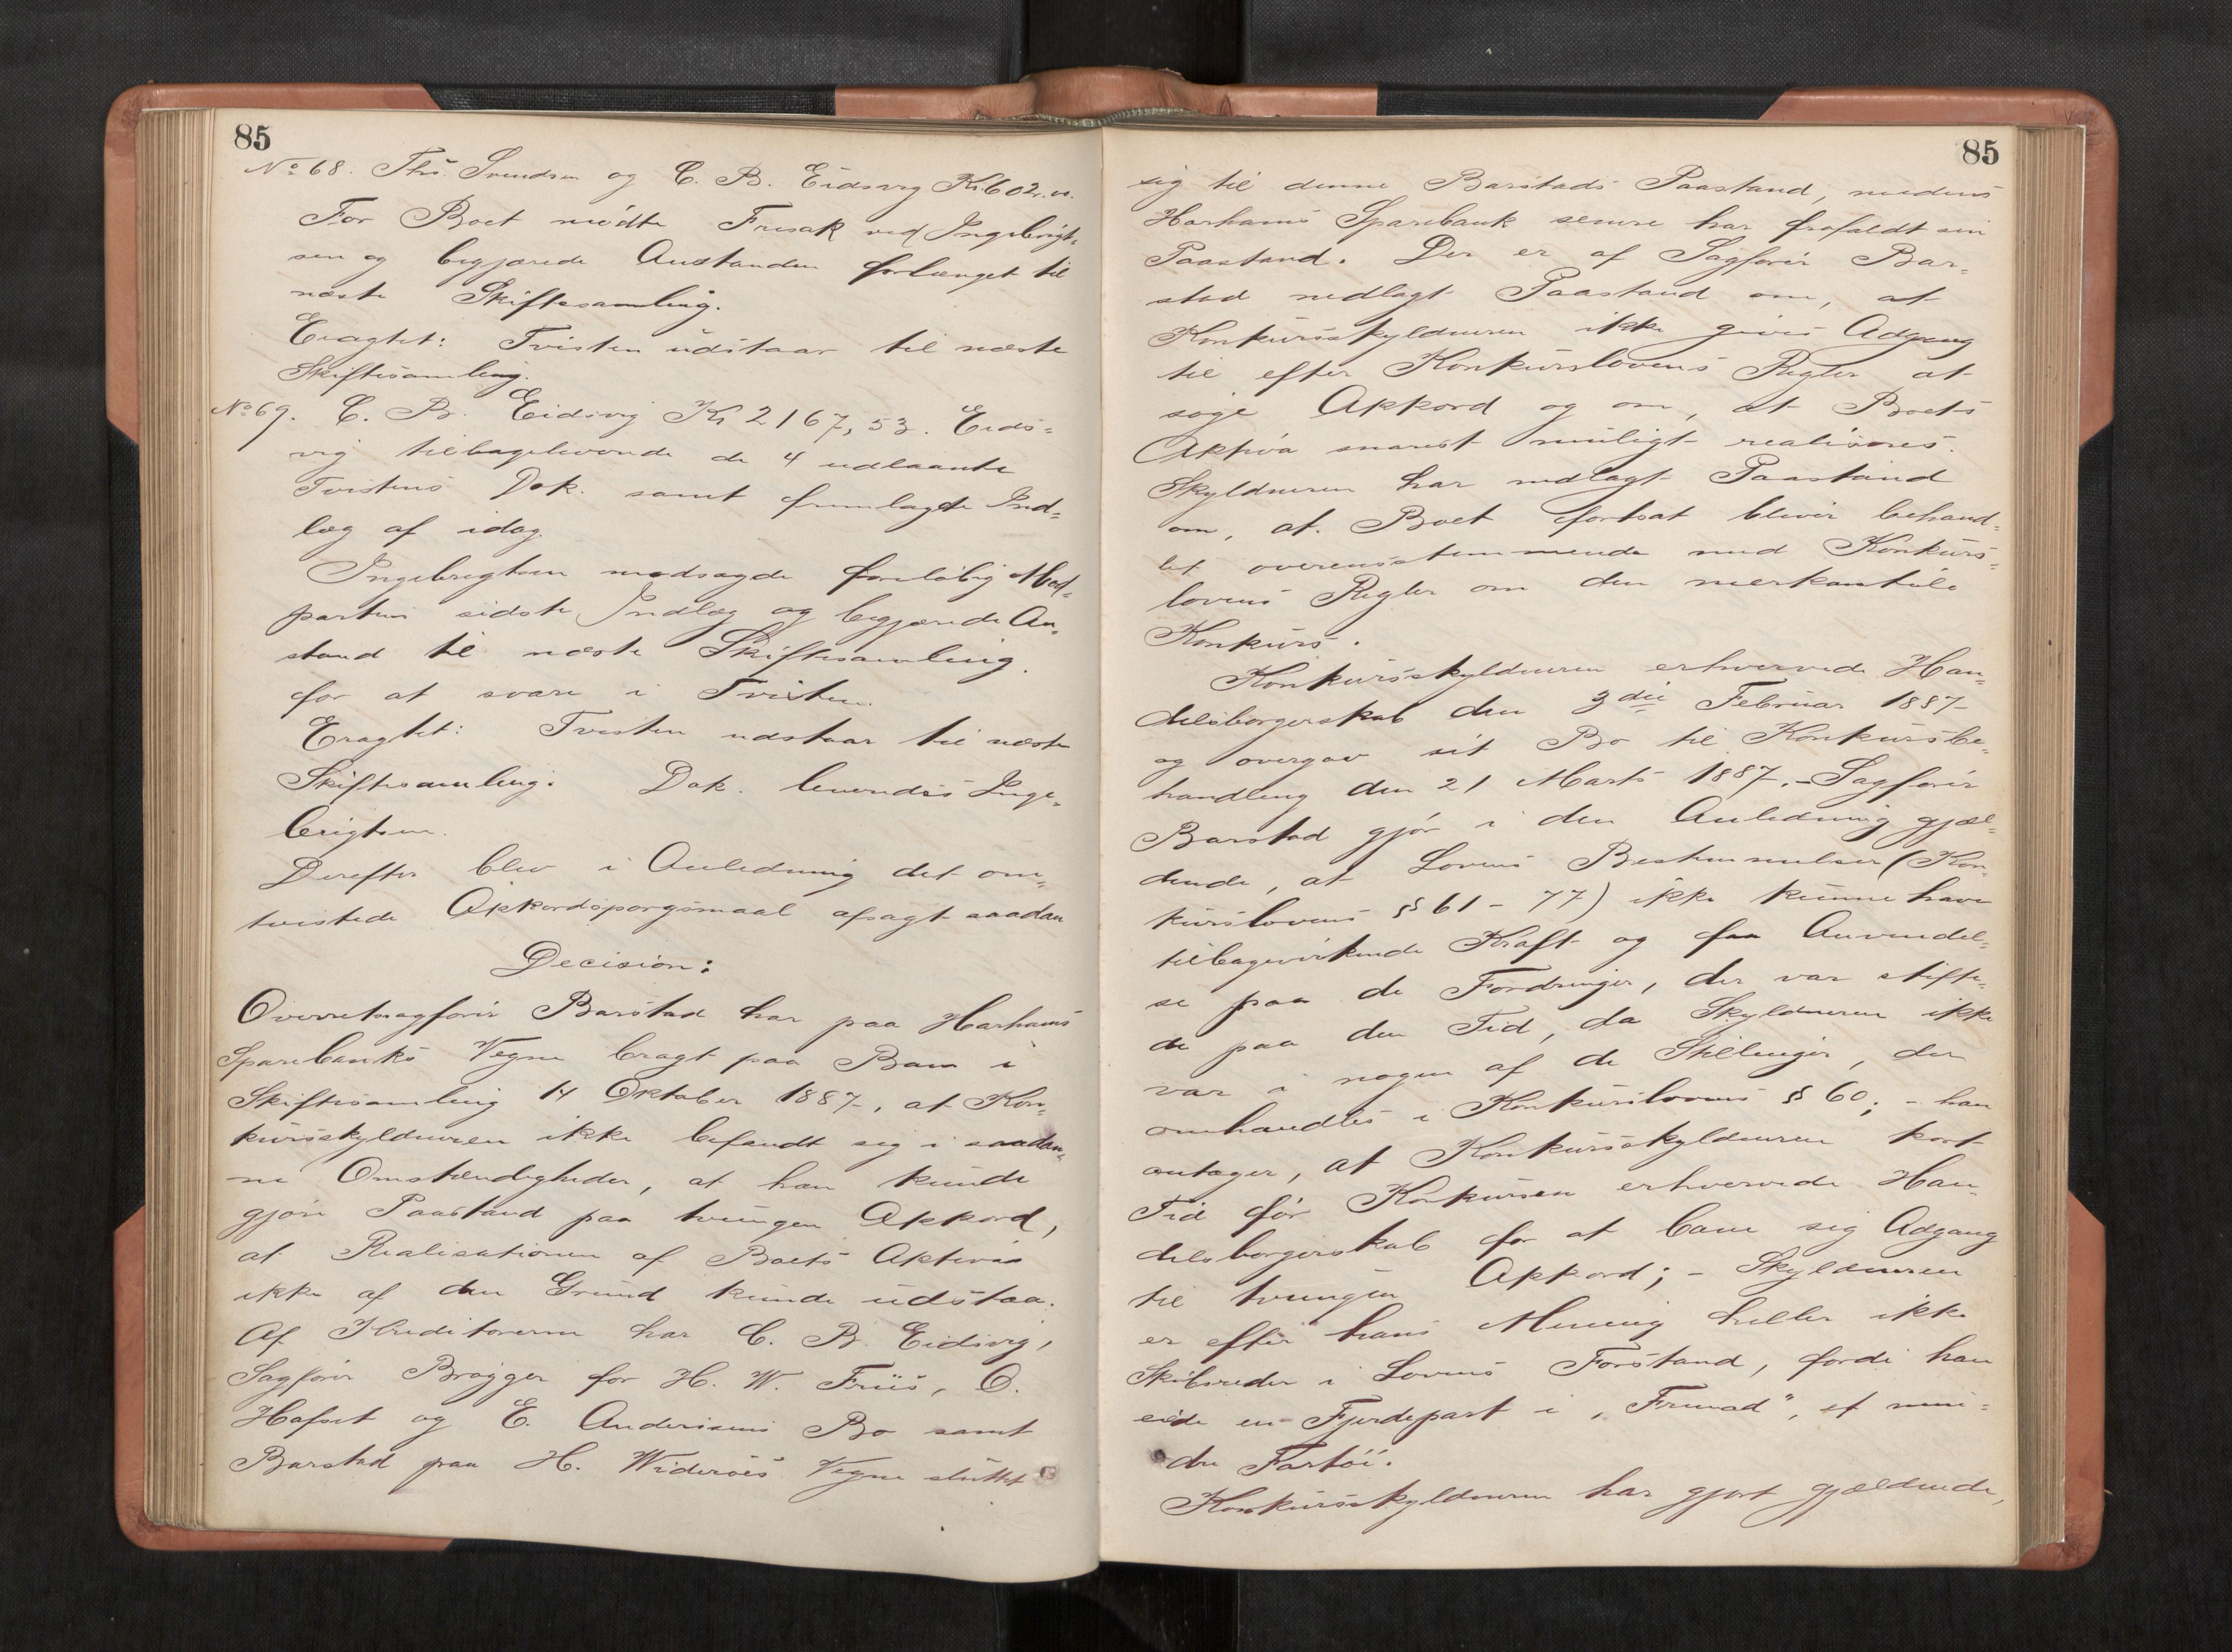 85
No 68. Ths. Svendsen og C. B. Eidsvig Kr 602.
For Boet mødte Fresak ved Ingebrigt-
sen og begjærede Anstanden forlænget til
næste Skiftesamling.
Eragtet: Tvisten udstaar til næste
Skiftesamling.
No 69. C. B. Eidsvig Kr 2167,53. Eids-
vig tilbageleverede de 4 udlaante
Tvistens Dok. samt fremlagde Ind-
læg af idag.
Ingebrigtsen modsagde foreløbig Mod-
partens sidste Indlæg og begjærede An-
stand til næste Skiftesamling
for at svare i Tvisten.
Eragtet: Tvisten udstaar til næste
Skiftesamling. Dok. leveredes Inge-
brigtsen.
Derefter blev i Anledning det om-
tvistede Akkordspørgsmaal afsagt saadan
Decision:
Overretssagfører Barstad har paa Harhams
Sparebanks Vegne bragt paa Bane i
Skiftesamling 14 Oktober 1887, at Kon-
kursskyldneren ikke befandt sig i saadan-
ne Omstændigheder, at han kunde
gjøre Paastand paa tvungen Akkord,
at Realisationen af Boets Aktiva
ikke af den Grund kunde udstaa.
Af Kreditorerne har C. B. Eidsvig,
Sagfører Brøgger for H. W. Friis, O.
Hafset og E. Anderssens Bo samt
Barstad paa H. Widerøes Vegne sluttet
85
sig til denne Barstads Paastand, medens
Harhams Sparebank senere har frafaldt sin
Paastand. Der er af Sagfører Bar-
stad nedlagt Paastand om, at
Konkursskyldneren ikke gives Adgang
til efter Konkurslovens Regler at
søge Akkord og om, at Boets
Aktiva snarest muligt realiseres.
Skyldneren har nedlagt Paastand
om, at Boet fortsat bliver behand-
let overensstemmende med Konkurs-
lovens Regler om den merkantile
Konkurs.
Konkursskyldneren erhvervede Han-
delsborgerskab den 3die Februar 1887
og overgav sit Bo til Konkursbe-
handling den 21 Marts 1887. - Sagfører
Barstad gjør i den Anledning gjæl-
dende, at Lovens Bestemmelser (Kon-
kurslovens §§ 61 - 77) ikke kunne have
tilbagevirkende Kraft og faa Anvendel-
se paa de Fordringer, der var stifte-
de paa den Tid, da Skyldneren ikke
var i nogen af de Stillinger, der
omhandles i Konkurslovens § 60; - han
antager, at Konkursskyldneren kort
Tid før Konkursen erhvervede Han-
delsborgerskab for at bane sig Adgang
til tvungen Akkord; - Skyldneren
er efter hans Mening heller ikke
Skibsreder i Lovens Forstand, fordi han
eide en Fjerdepart i „Fremad", et min-
dre Fartøi.
Konkursskyldneren har gjort gjældende,